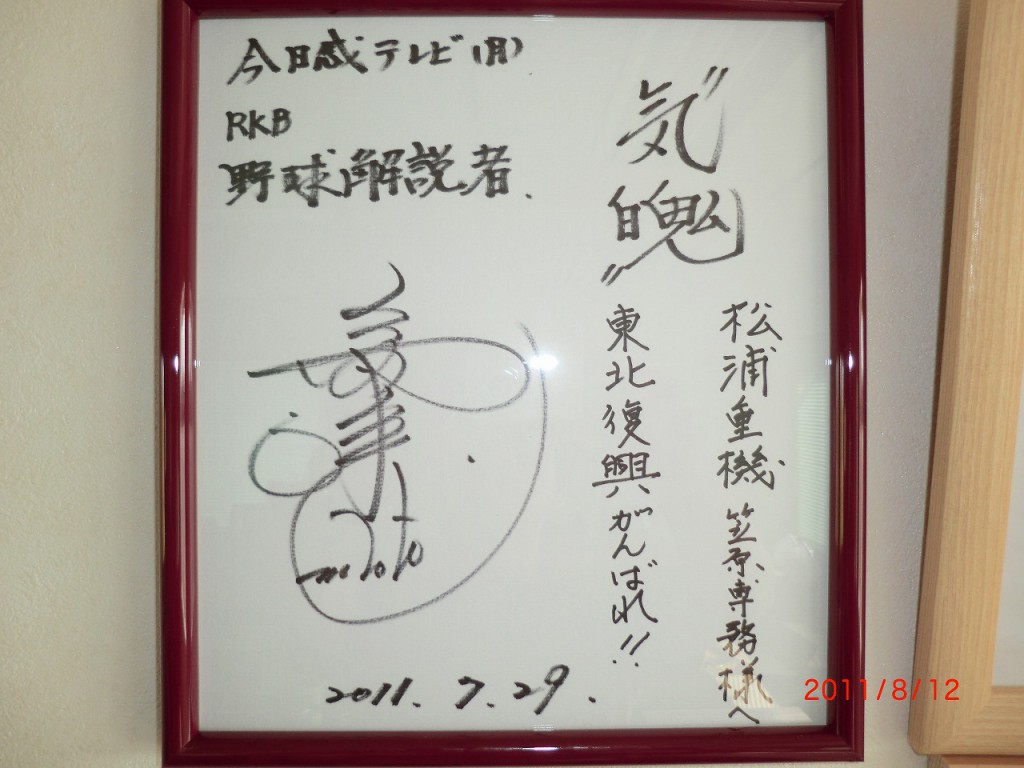 今日感テレビ(月)
RKB
野球解説者.
"気
魄"
松浦重機 笠原専務様へ
東北復興がんばれ!!
moto
2011. 7. 29.
2011/8/12